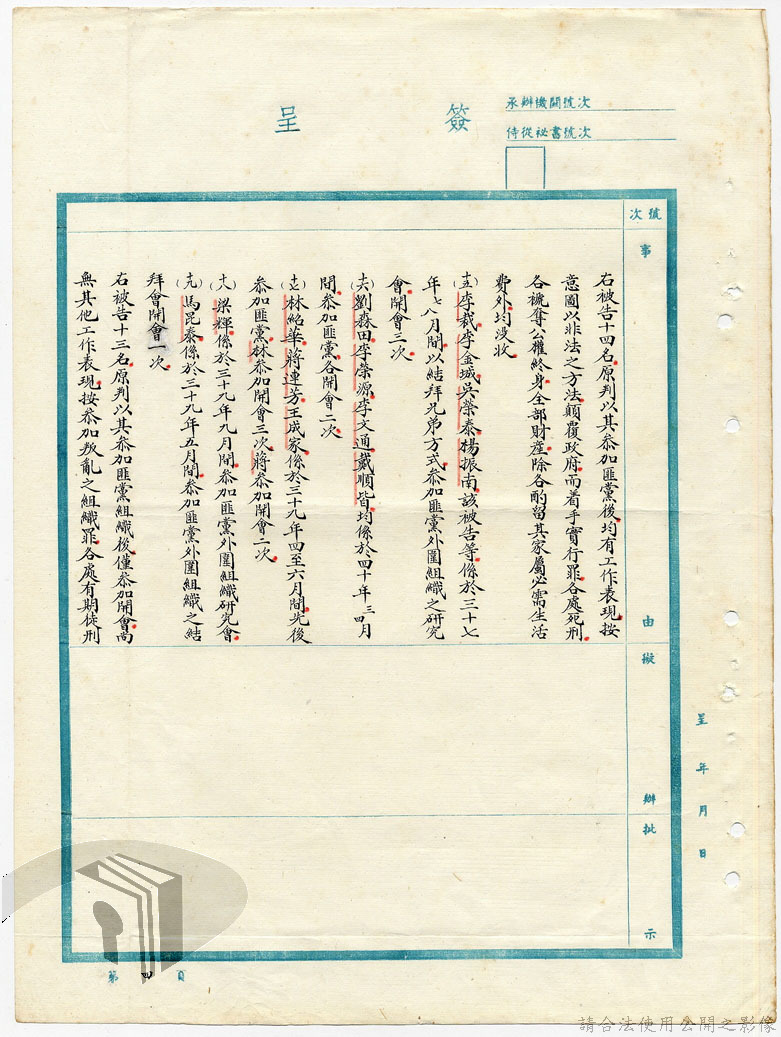 簽呈
承辦機關號次
侍從祕書號次
號次
事由
擬辦
批示
右被告十四名原判以其參加匪黨後均有工作表現按
意圖以非法之方法顛覆政府而着手實行罪各處死刑
各褫奪公權終身全部財產除各酌留其家屬必需生活
費外均沒收
(十五)李裁李金城吳榮泰楊振南該被告等係於三十七
年七八月間以結拜兄弟方式參加匪黨外圍組織之研究
會開會三次
(十六)劉森田李榮源李文通戴順皆均係於四十年三四月
間參加匪黨各開會二次
(十七)林紹華蔣連芳王成家係於三十九年四至六月間先後
參加匪黨林參加開會三次蔣參加開會二次
(十八)梁輝係於三十九年九月間參加匪黨外圍組織研究會
(十九)馬昆泰係於三十九年五月間參加匪黨外圍組織之結
拜會開會一次
右被告十三名原判以其參加匪黨組織後僅參加開會尚
無其他工作表現按參加叛亂之組織罪各處有期徒刑
呈 年 月 日
第四頁
請合法使用公開之影像